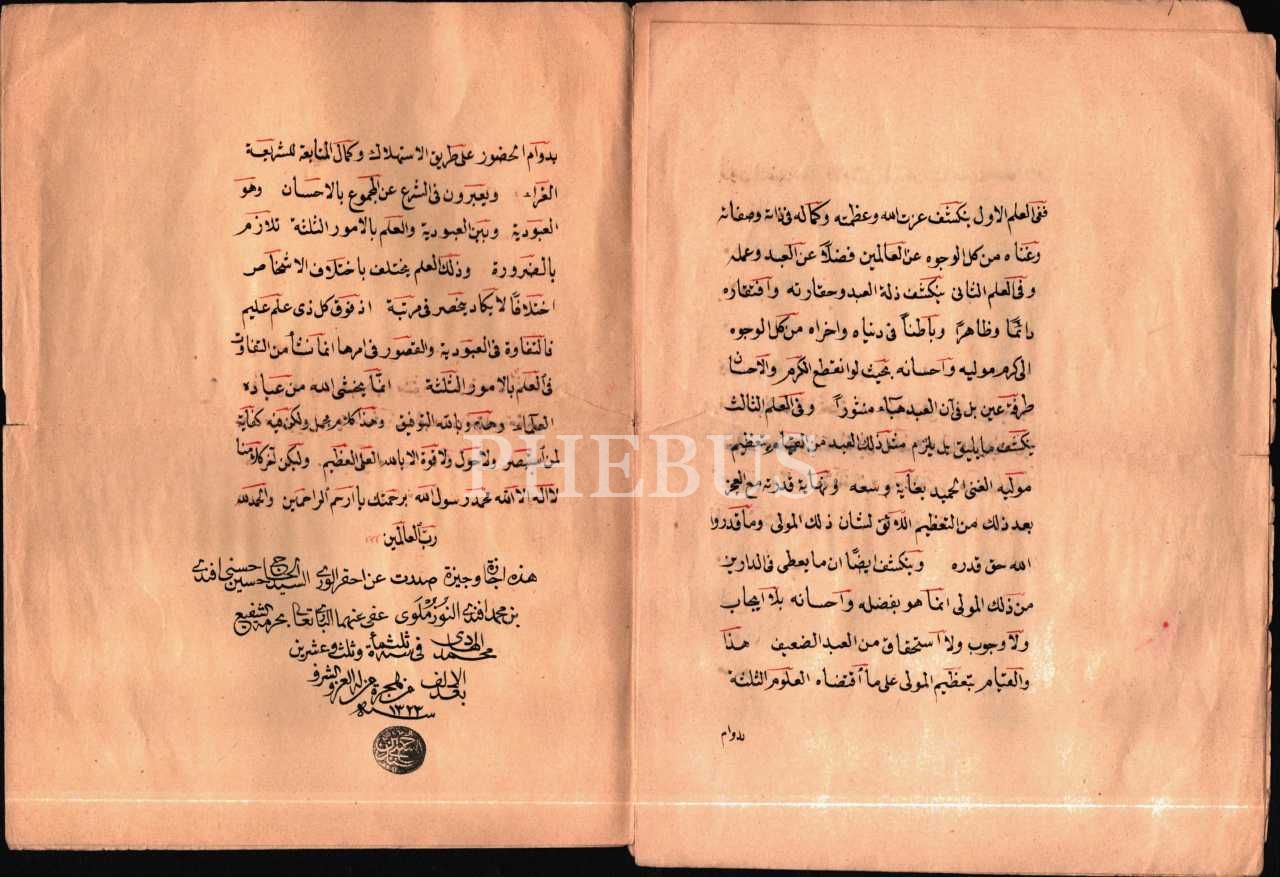 ففى العلم الاول ينكشف عزت الله وعظمته وكماله فى ذاته وصفاته
وغناه من كل الوجوه عن العالمين فضلاً عن العبد وعمله
وفى العلم الثانى ينكشف ذلة العبد وحقارته وافتقاره
دائمًا وظاهرً وباطناً فى دنياه واخراه من كل الوجوه
الى كرم موليه واحسانه بحيث لو انقطع الكرم والاحسان
طرفة عين بل فى آن العبد هباء منثوراً وفى العلم الثالث
ينكشف ما يليق بل يلزم مثل ذلك العبد من القيام بتعظيم
موليه الغنى الحميد بغاية وسعه ونهاية قدرته مع العجز
بعد ذلك من التعظيم اللائق لشان ذلك المولى وما قدروا
الله حق قدره وينكشف ايضًا ان ما يعطى فى الدارين
من ذلك المولى انما هو بفضله واحسانه بلا ايجاب
ولا وجوب ولا استحقاق من العبد الضعيف هذا
والقيام بتعظيم المولى على ما اقتضاه العلوم الثلثة
بدوام
بدوام الحضور على طريق الاستهلاك وكمال المتابعة للشريعة
الغراء ويعبرون فى الشرع عن المجموع بالاحسان وهو
العبودية وبين العبودية والعلم بالامور الثلثة تلازم
بالضرورة وذلك العلم يختلف باختلاف الاشخاص
اختلافًا لا يكاد ينحصر فى مرتبة اذ فوق كل ذى علم عليم
فالتفاوة فى العبودية والقصور فى امرها انما نشأ من التفاوت
فى العلم بالامور الثلثة انما يخشى الله من عباده
العلماء وحدهم وبالله التوفيق وهذا كلام مجمل ولكن فيه كفاية
لمن استبصر ولا حول ولا قوة الا بالله العلى العظيم وليكن آخر كلامنا
لا اله الا الله محمد رسول الله برحمتك يا ارحم الراحمين والحمد لله
رب العالمين
هذه اجازة وجيزة صدرت عن احقر الورى السيد الحاج حسين حسنى افندى
بن محمد افندى عفى عنهما البارى تعالى بحرمة الشفيع
محمد الهادى فى سنة ثلثمأة وثلث وعشرين
بعد الالف من هجرة من له العز والشرف
سنه ١٣٢٣
PHEBUS